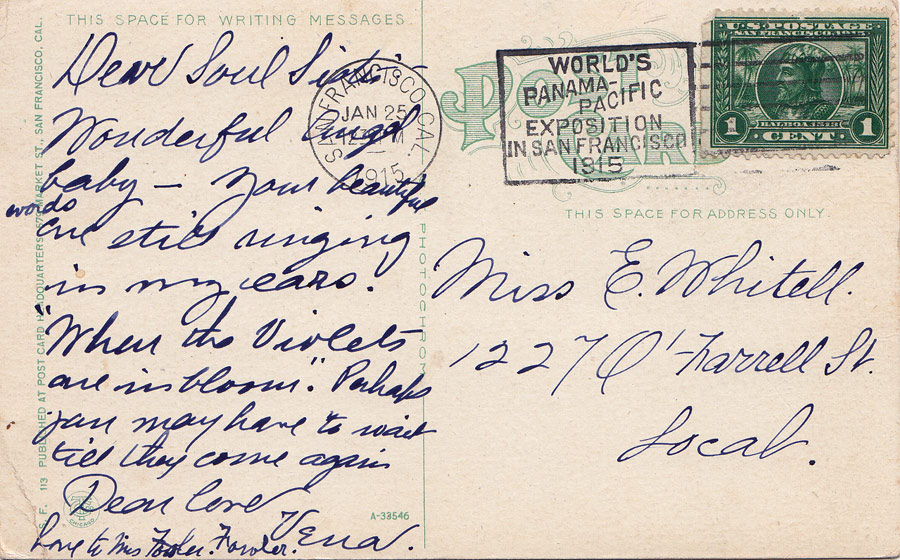 THIS SPACE FOR WRITING MESSAGES.
Dear Soul Sister
Wonderful Angel
baby – Your beautiful
words
are still ringing
in my ears.
"When the Violets
are in bloom". Perhaps
you may have to wait
till they come again
Dear love
Vena.
Love to Mrs Fowler. Fowler.
S. F. 113 PUBLISHED AT POST CARD HEADQUARTERS, 579 MARKET ST. SAN FRANCISCO, CAL.
PHOTOCHROM
A-33546
CHICAGO
SAN FRANCISCO, CAL.
JAN 25
1915
Post Card
WORLD'S
PANAMA-
PACIFIC
EXPOSITION
IN SAN FRANCISCO
1915
U.S. POSTAGE
SAN FRANCISCO 1915
BALBOA 1513
1 CENT 1
THIS SPACE FOR ADDRESS ONLY.
Miss E. Whitell.
1227 O'Farrell St.
Local.